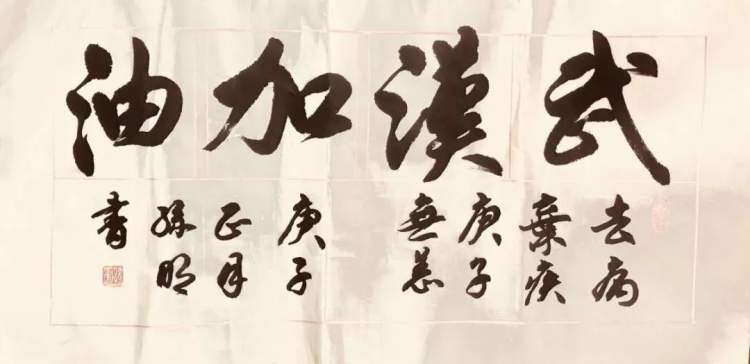 武漢加油
去病
棄疾
庚子
無恙
庚子
正月
孫明
書